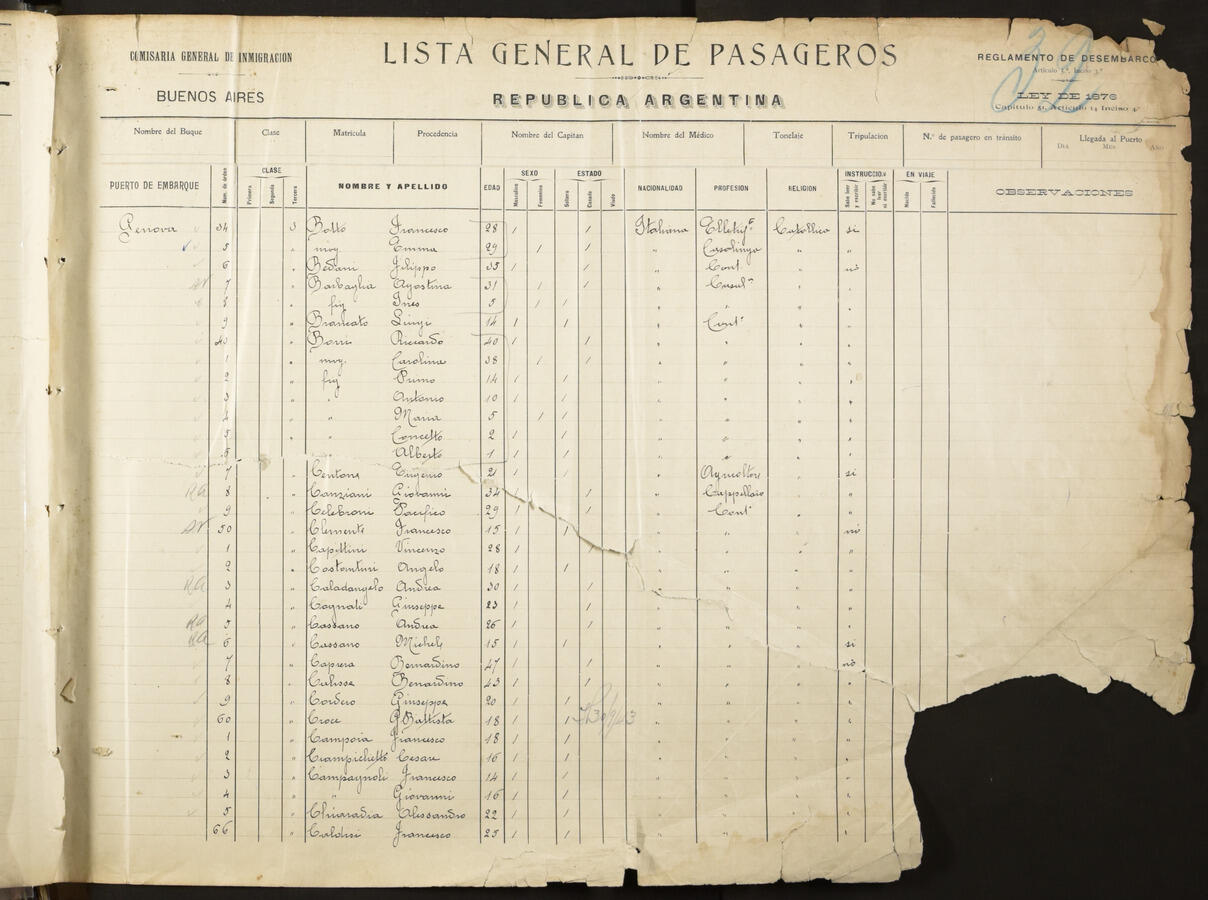 COMISARIA GENERAL DE INMIGRACION
BUENOS AIRES
LISTA GENERAL DE PASAGEROS
REPUBLICA ARGENTINA
REGLAMENTO DE DESEMBARCO
Artículo 1.º, Inciso 3.º
LEY DE 1876
Capítulo 51, Artículo 14 Inciso 4º
Nombre del Buque Clase Matrícula Procedencia Nombre del Capitan Nombre del Médico Tonelaje Tripulacion N.º de pasagero en tránsito Llegada al Puerto
DIA MES AÑO
PUERTO DE EMBARQUE Núm. de órden CLASE Primera Segunda Tercera NOMBRE Y APELLIDO EDAD SEXO Masculino Femenino ESTADO Soltero Casado Viudo NACIONALIDAD PROFESION RELIGION INSTRUCCION Sabe leer y escribir No sabe leer ni escribir EN VIAJE Nacido Fallecido OBSERVACIONES
Genova 34 3 Botto Francesco 28 / / Italiana Catollico si
5 " mog Emma 29 / / " Casalinga " "
6 " Bedani Filippo 33 / / " Cont " no
7 " Barbaglia Agostina 31 / / " "
8 " fig Ines 5 / / " " "
9 " Brancato Luigi 14 / / " Cont " "
40 " Borri Riccardo 40 / / " " " "
1 " mog. Carolina 38 / / " " " "
2 " fig Primo 14 / / " " " "
3 " " Antonio 10 / / " " " "
4 " " Maria 5 / / " " " "
5 " " Concetto 2 / / " " " "
" Alberto 1 / / " " " "
7 " Eugenio 21 / / " Agricoltore " si
RA 8 " Canziani Giovanni 34 / / " Cappellaio " "
9 " Celebroni Pacifico 29 / / " Cont " "
50 " Clemente Francesco 15 / / no
1 " Capettini Vincenzo 28 / " "
2 " Angelo 18 / / " "
RA 3 " Caladangelo Andrea 30 / / " " "
4 " Cagnati Giuseppe 23 / / " "
RA 5 " Cassano Andrea 26 / / " " " "
RA 6 " Cassano Michele 15 / / " " " si
7 " Caprera Bernardino 47 / / " " " no
8 " Calisse Benardino 43 / / " " " "
9 " Cordero Giuseppe 20 / / " " " "
60 " Croce G Battista 18 / / " " " "
1 " Campoia Francesco 18 / / " " " "
2 " Cesare 16 / / " " " "
3 " Campagnoli Francesco 14 / / " " " "
4 " " Giovanni 16 / / " " " "
5 " Chiaradia Alessandro 22 / / " " " "
66 " Caldisi Francesco 25 / / " " " "